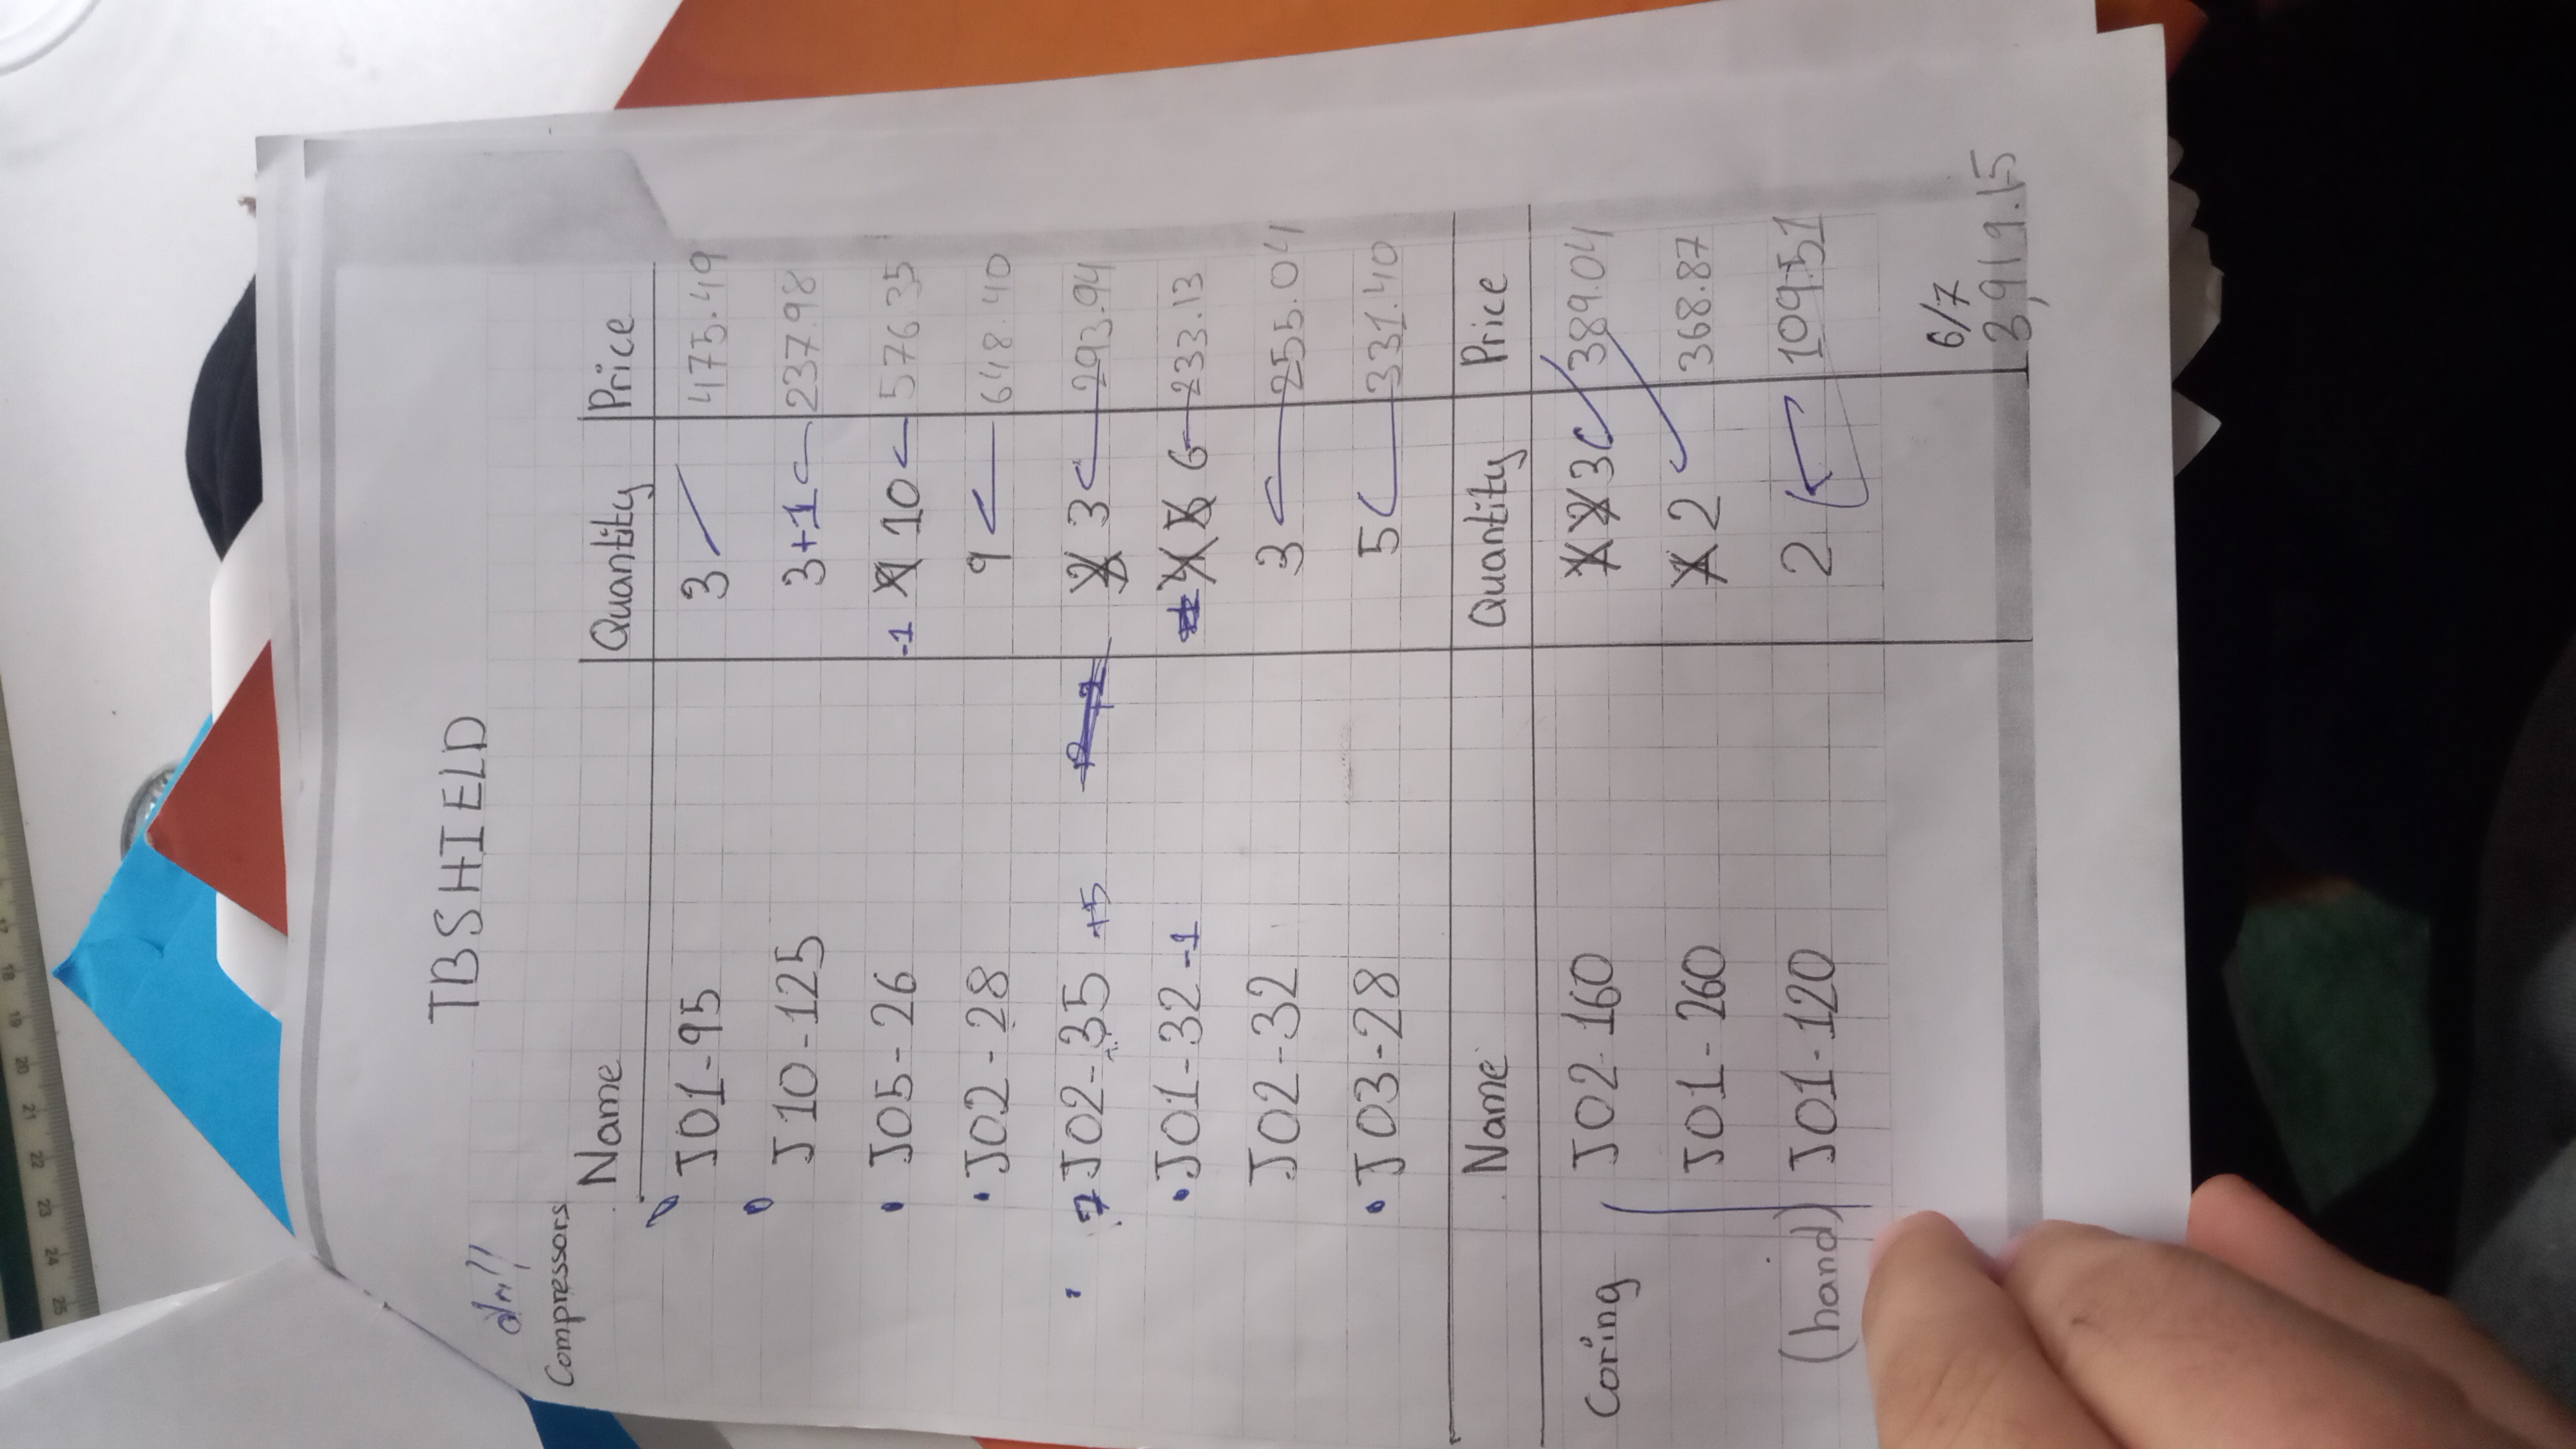 TBSHIELD
Compressors
Name Quantity Price
J01-95 3 475.49
J10-125 3+1 237.98
J05-26 -1 10 576.35
J02-28 9 648.40
7 J02-35 +5 3 293.94
J01-32 -1 6 233.13
J02-32 3 255.04
J03-28 5 331.40
Name Quantity Price
Coring J02-160 3 389.04
J01-260 2 368.87
(hand) J01-120 2 109.51
6/7
3,919.15